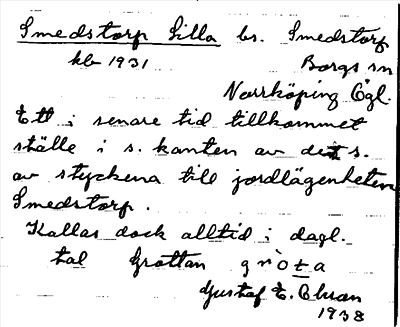 Smedstorp Lilla bs. Smedstorp
kb 1931 Borgs sn
Norrköping Ögl.
Ett i senare tid tillkommet
ställe i s. kanten av det s.
av styckena till jordlägenheten
Smedstorp.
Kallas dock alltid i dagl.
tal Grottan gròta
Gustaf E. Ohson
1938